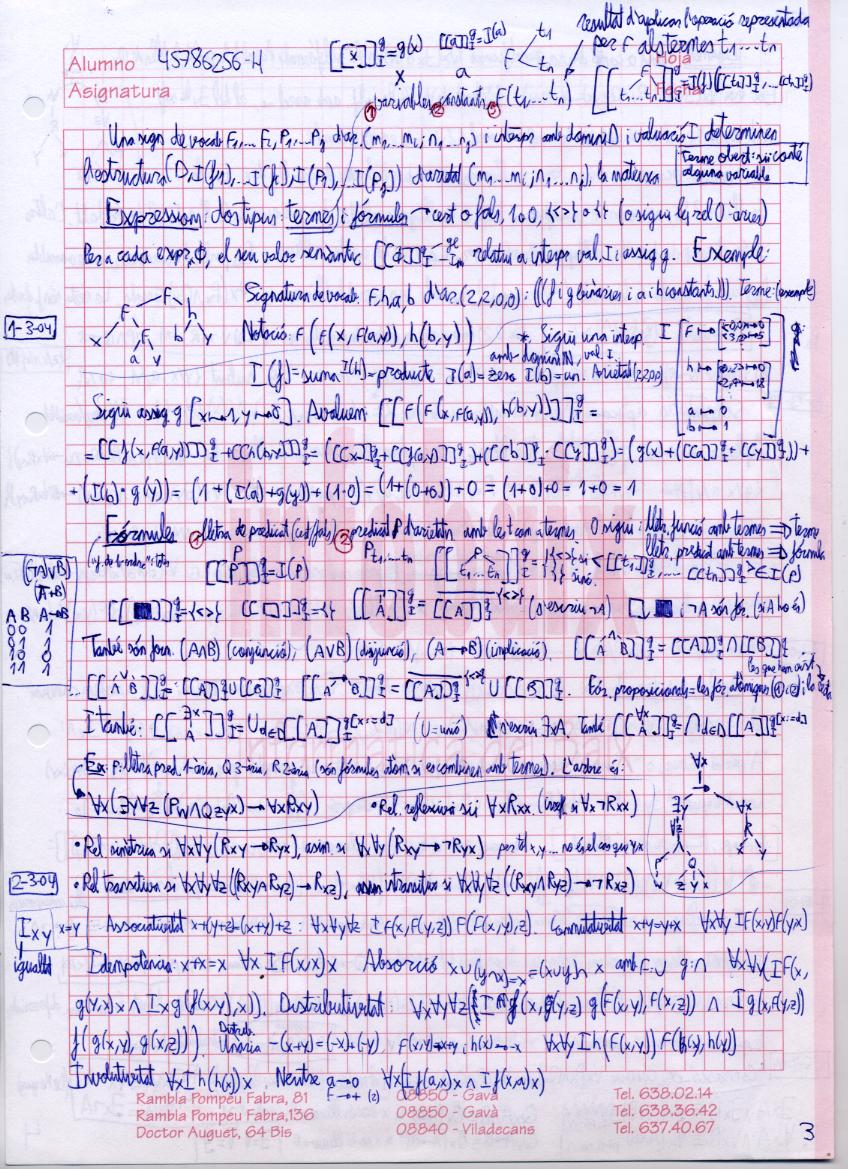 Alumno 45786256-H
Asignatura
[[x]]^g_I = g(x) [[a]]^g_I = I(a)
resultat d'aplicar l'operació representada
per F als termes t1...tn
Hoja
Fecha
① variables ② constants ③ F(t1...tn)
Una sign. de vocab F1,... Fi, P1...Pj d'ar. (m1...mi; n1...nj) i interpr. amb domini D i valuació I determinen
l'estructura (D, I(f1),...I(fi), I(P1),...I(Pj)) d'arietat (m1...mi; n1...nj), la mateixa
Terme obert: sii conté
alguna variable
Expressions: dos tipus: termes i fórmules → cert o fals, 1 o 0, {<>} o {} (o sigui les rel 0-àries)
Per a cada expr. Φ, el seu valor semàntic [[Φ]] relatiu a interpr val, I i assig g. Exemple:
Signatura de vocab. F, h, a, b d'ar. (2,2,0,0): (((f i g binàries i a i b constants))). Terme: (exemple)
1-3-04
Notació: F(F(x, F(a,y)), h(b,y))
* Sigui una interp. I
amb domini N, val. I.
I(f) = suma I(h) = producte I(a) = zero I(b) = un. Arietat (2,2,0,0)
Sigui assig g [x→1, y→0]. Avaluem [[F(F(x, F(a,y)), h(b,y))]]^g_I =
= [[f(x, F(a,y))]]^g_I + [[h(b,y)]]^g_I = ([[x]]^g_I + [[f(a,y)]]^g_I) + ([[b]]^g_I · [[y]]^g_I) = (g(x) + ([[a]]^g_I + [[y]]^g_I)) +
+ (I(b) · g(y)) = (1 + (I(a) + g(y)) + (1·0) = (1+(0+0)) + 0 = (1+0)+0 = 1+0 = 1
Fórmules ① lletra de predicat (cert/fals) ② predicat P d'arietat n amb les t com a termes. O sigui: lletr. funció amb termes ⇒ terme
lletr. predicat amb termes ⇒ fórmula
[[P]]^g_I = I(P)
(¬A)∨B
A B A→B
0 0 1
0 1 1
1 1 1
1 0 0
[[■]]^g_I = {<>} [[□]]^g_I = {} (s'escriu ¬A) □, ■ i ¬A són fór. (si A ho és)
També són form. (A∧B) (conjunció), (A∨B) (disjunció), (A→B) (implicació). [[A∧B]]^g_I = [[A]]^g_I ∩ [[B]]^g_I
[[A∨B]]^g_I = [[A]]^g_I ∪ [[B]]^g_I
Fór. proposicionals = les fór. atòmiques
I també: [[∃x A]]^g_I = ∪d∈D [[A]]^g[x:=d]_I (∪=unió) s'escriu ∃xA També [[∀x A]]^g_I = ∩d∈D [[A]]^g[x:=d]_I
Ex: p: lletra pred. 1-ària, Q 3-ària, R 2-ària (són fórmules atòm si es combinen amb termes). L'arbre és:
∀x(∃y∀z(Pw∧Qzyx)→∀xRxy) • Rel. reflexiva sii ∀xRxx. (irrefl. si ∀x¬Rxx)
• Rel. simètrica si ∀x∀y(Rxy→Ryx), asim. si ∀x∀y(Rxy→¬Ryx)
2-3-04
• Rel transitiva si ∀x∀y∀z((Rxy∧Ryz)→Rxz), intransitiva si ∀x∀y∀z((Rxy∧Ryz)→¬Rxz)
Ixy x=y
igualtat
Associativitat x+(y+z)=(x+y)+z : ∀x∀y∀z I F(x, F(y,z)) F(F(x,y),z). Conmutativitat x+y=y+x ∀x∀y I F(x,y) F(y,x)
Idempotència: x+x=x ∀x I F(x,x) x Absorció x∪(y∩x)=x=(x∪y)∩x amb F:∪ g:∩ ∀x∀y(I F(x,
g(y,x)) x ∧ I x g(f(x,y),x)). Distributivitat: ∀x∀y∀z(I f(x, g(y,z)) g(F(x,y), F(x,z)) ∧ I g(x, F(y,z))
f(g(x,y), g(x,z))). Distrib. Unària -(x+y)=(-x)+(-y), F(x,y)→x+y; h(x)→-x ∀x∀y I h(F(x,y)) F(h(x), h(y))
Involutivitat ∀x I h(h(x)) x Neutre a→0 F→+ (2) ∀x(I f(a,x) x ∧ I f(x,a) x)
Rambla Pompeu Fabra, 81 08850 - Gavà Tel. 638.02.14
Rambla Pompeu Fabra, 136 08850 - Gavà Tel. 638.36.42
Doctor Auguet, 64 Bis 08840 - Viladecans Tel. 637.40.67
3